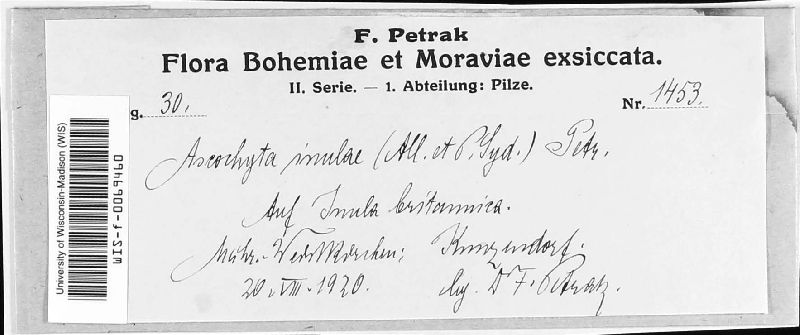 F. Petrak
Flora Bohemiae et Moraviae exsiccata.
II. Serie. — 1. Abteilung: Pilze.
g. 30.
Nr. 1453.
Ascochyta inulae (All. et P. Syd.) Petr.
Auf Inula britannica.
Mähr.-Weisskirchen: Kunzendorf.
20. VIII. 1920. lg. Dr F. Petrak.
University of Wisconsin-Madison (WIS)
WIS-f-0069460